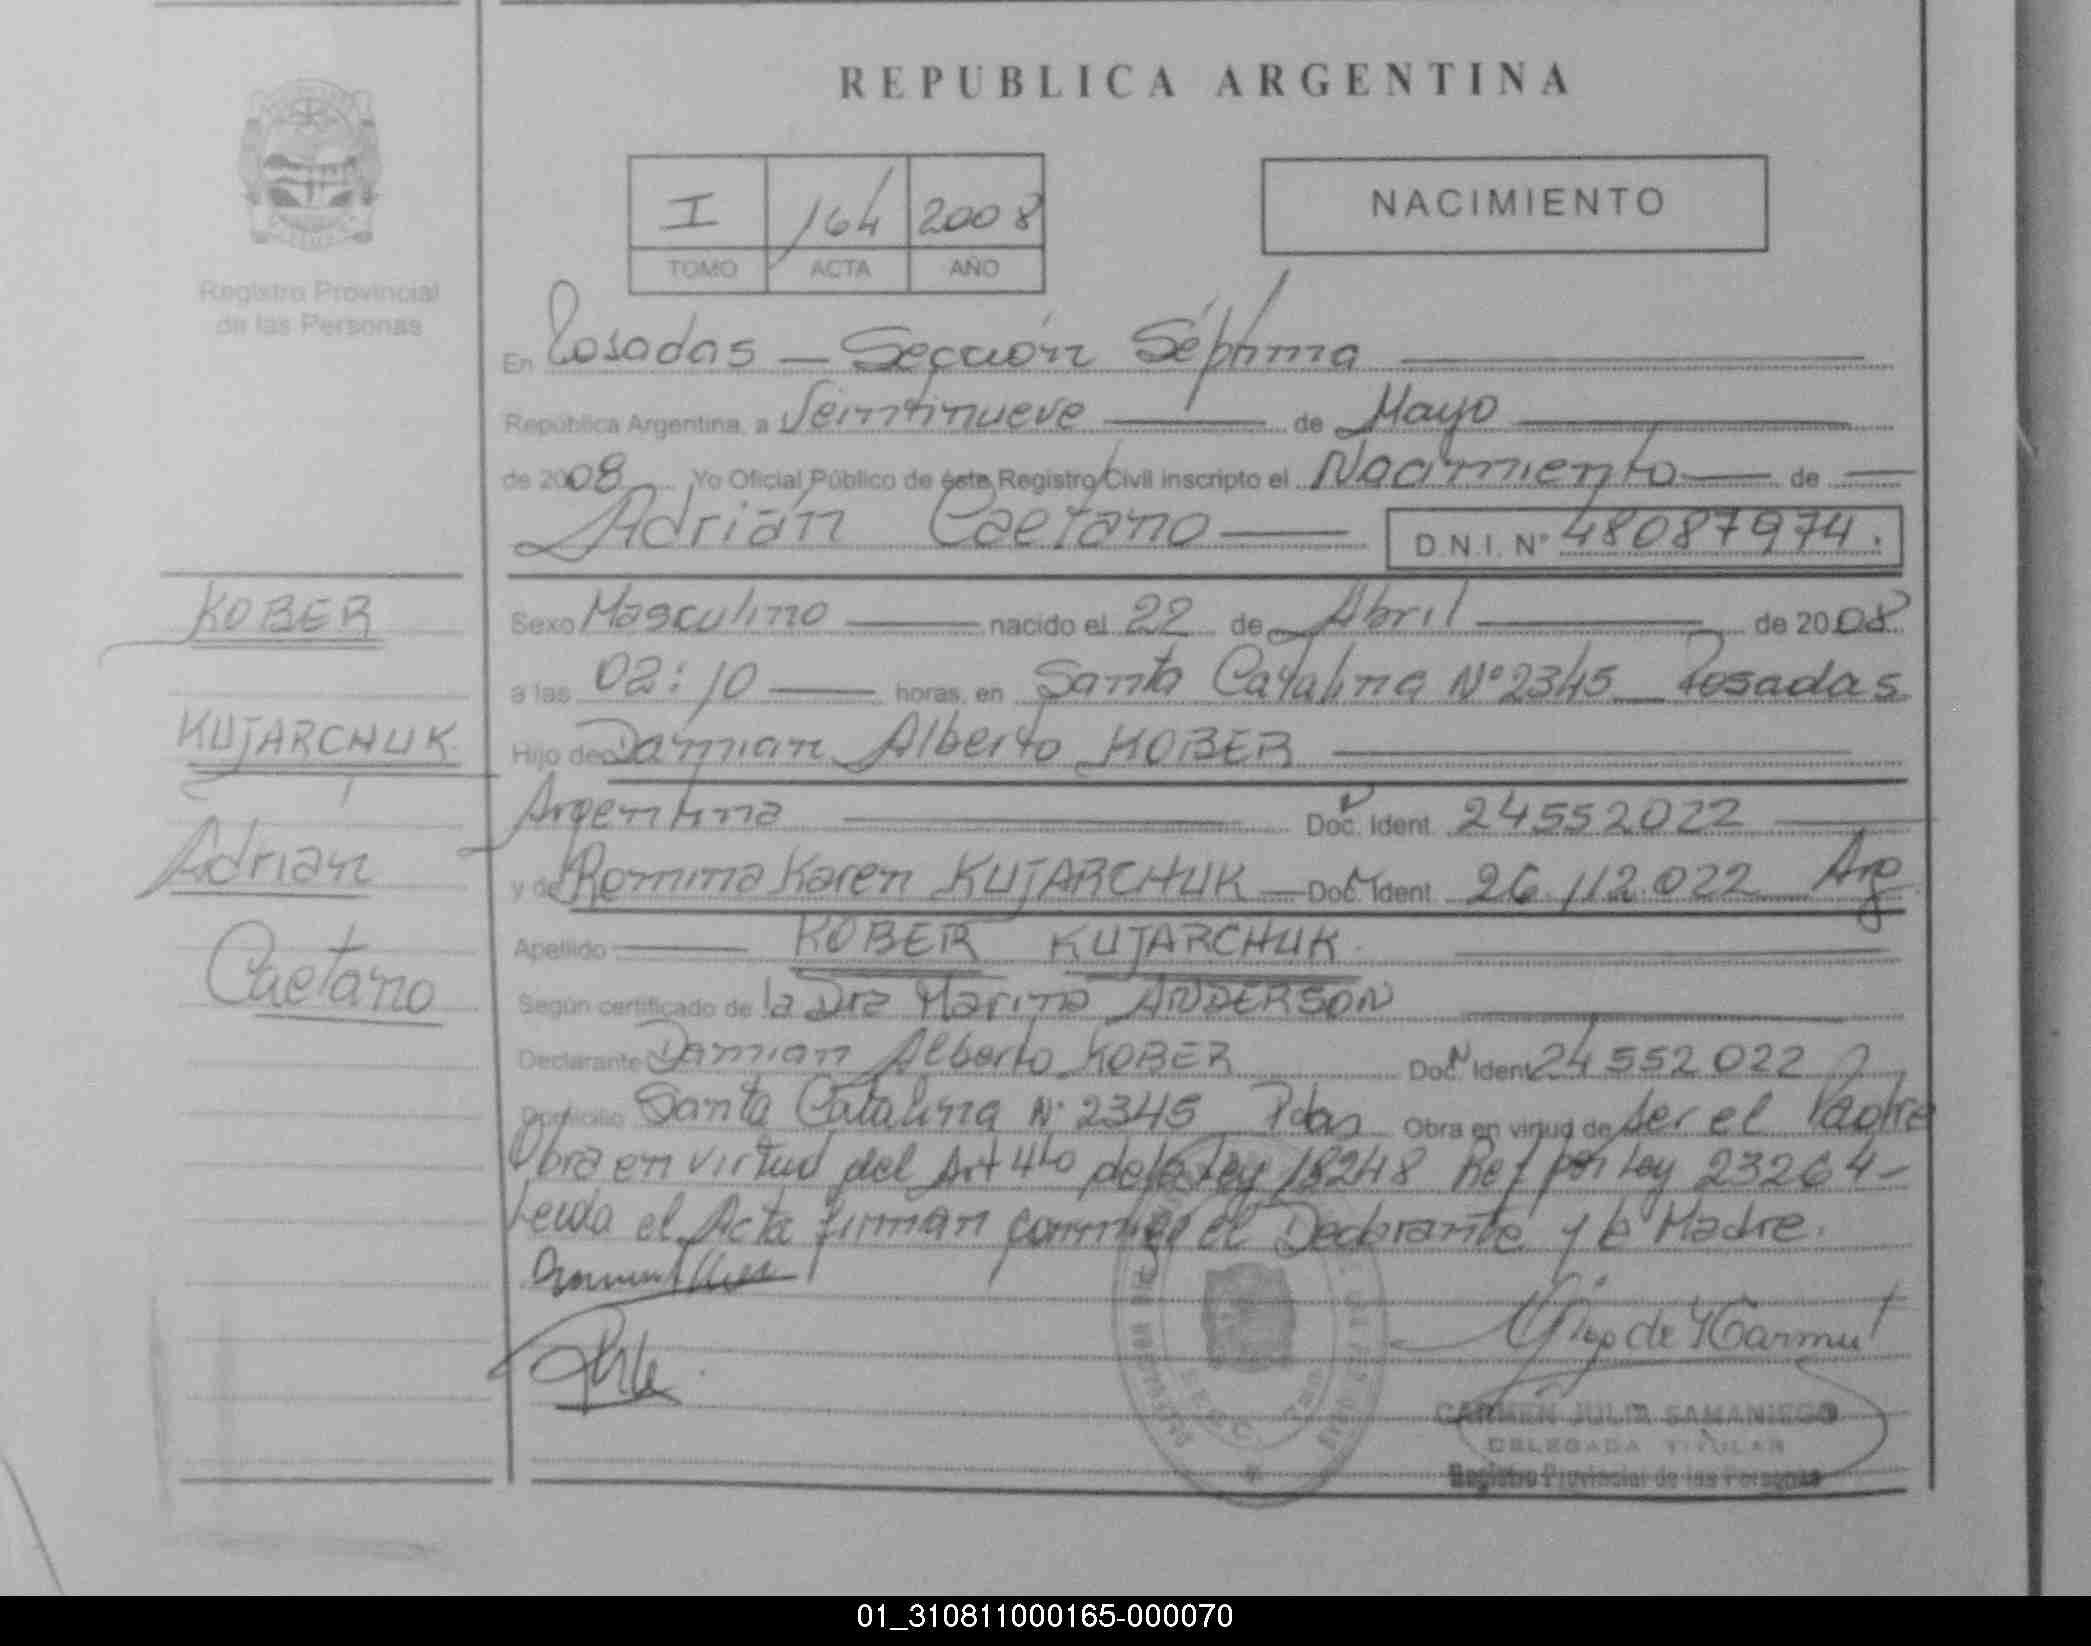 REPUBLICA ARGENTINA
I 164 2008
TOMO ACTA AÑO
NACIMIENTO
Registro Provincial
de las Personas
En Posadas — Sección Séptima
República Argentina, a Veintinueve de Mayo
de 2008 Yo Oficial Público de éste Registro Civil inscripto el Nacimiento de
Adrián Caetano D.N.I. Nº 48087974.
KOBER
KUJARCHUK
Adrián
Caetano
Sexo Masculino nacido el 22 de Abril de 2008
a las 02:10 horas, en Santa Catalina Nº 2345 Posadas
Hijo de Damian Alberto KOBER
Argentina Doc. Ident. 24552022
y de Romina Karen KUJARCHUK Doc. Ident. 26.112.022 Arg
Apellido KOBER KUJARCHUK
Según certificado de la Dra Marina ANDERSON
Declarante Damian Alberto KOBER Doc. Ident 24552022
Domicilio Santa Catalina Nº 2345 Pdas Obra en virtud de ser el Padre
Obra en virtud del Art 4to de la Ley 18248 Ref por Ley 23264-
Leida el Acta firman conmigo el Declarante y la Madre.
CARMEN JULIA SAMANIEGO
DELEGADA TITULAR
Registro Provincial de las Personas
01_310811000165-000070